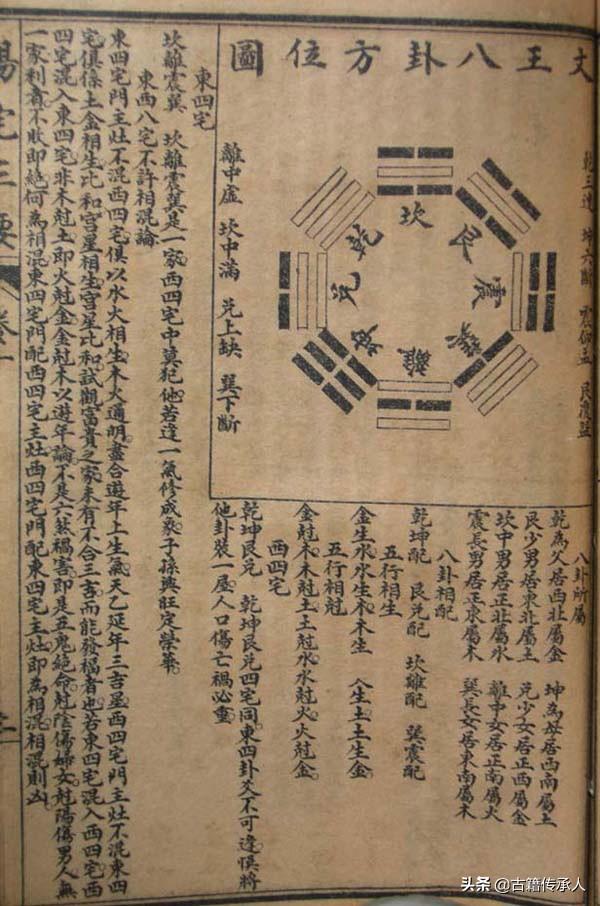 文王八卦方位圖
乾三連 坤六斷 震仰盂 艮覆盌
坎
艮
震
巽
離
坤
兌
乾
離中虛 坎中滿 兌上缺 巽下斷
八卦所屬
乾為父居西北屬金 坤為母居西南屬土
艮少男居東北屬土 兌少女居正西屬金
坎中男居正北屬水 離中女居正南屬火
震長男居正東屬木 巽長女居東南屬木
八卦相配
乾坤配 艮兌配 坎離配 巽震配
五行相生
金生水水生木木生 火生土土生金
五行相尅
金尅木木尅土土尅水水尅火火尅金
西四宅
乾坤艮兌 乾坤艮兌四宅同東四卦爻不可逢悞將
他卦裝一屋人口傷亡禍必重
東四宅
坎離震巽 坎離震巽是一家西四宅中莫犯他若逢一氣修成象子孫興旺定榮華
東西八宅不許相混論
東四宅門主灶不混西四宅俱以水火相生木火通明盡合遊年上生氣天乙延年三吉星西四宅門主灶不混東四
宅俱係土金相生比和宮星相生宮星比和試觀富貴之家未有不合三吉而能發福者也若東四宅混入西四宅西
四宅混入東四宅非木尅土即火尅金金尅木以遊年論不是六煞禍害即是五鬼絕命尅陰傷婦女尅陽傷男人無
一家利者不敗即絕何為相混東四宅門配西四宅主灶西四宅門配東四宅主灶即為相混相混則凶
陽宅三要 卷一
三
头条 @古籍传承人